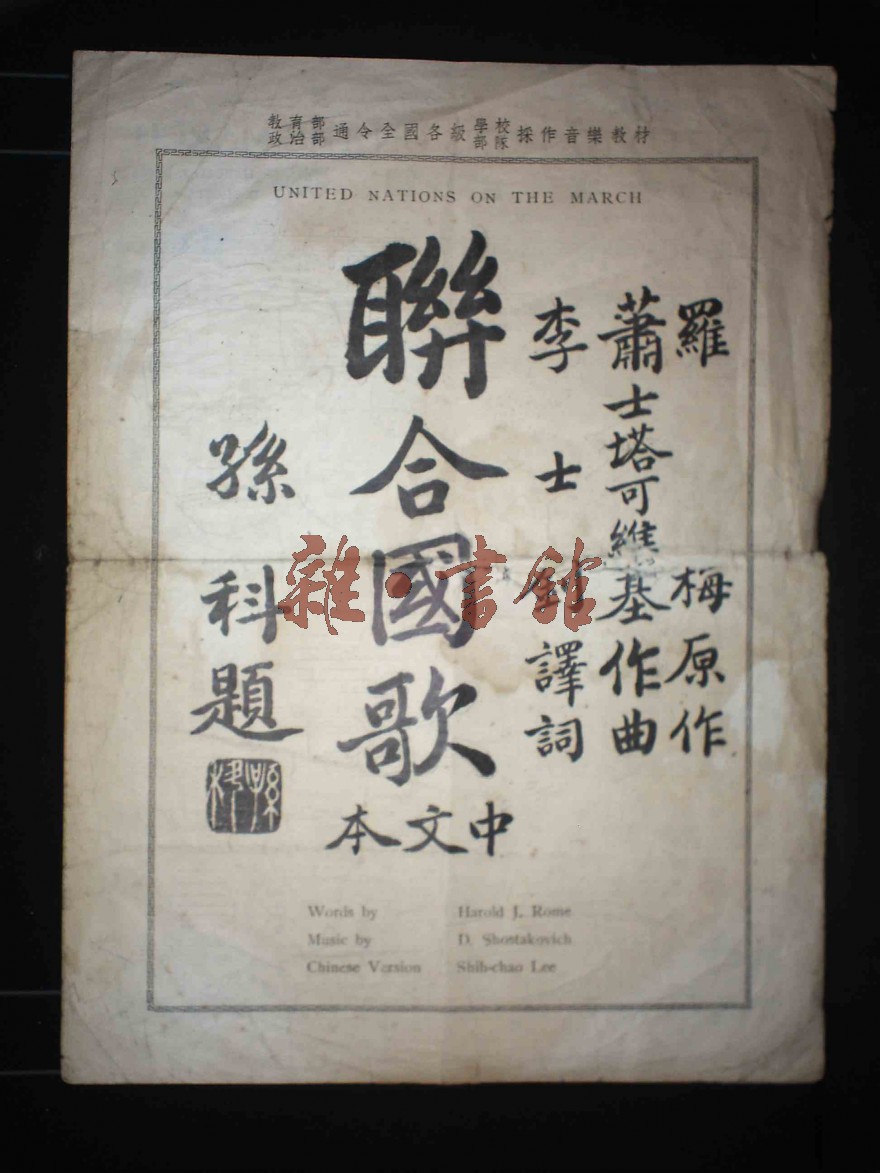 教育部政治部通令全國各級學校部隊採作音樂教材
UNITED NATIONS ON THE MARCH
羅梅原作
蕭士塔可維基作曲
李士譯詞
聯合國歌
中文本
孫科題
雜·書館
Words by Harold J. Rome
Music by D. Shostakovich
Chinese Version Shih-chao Lee